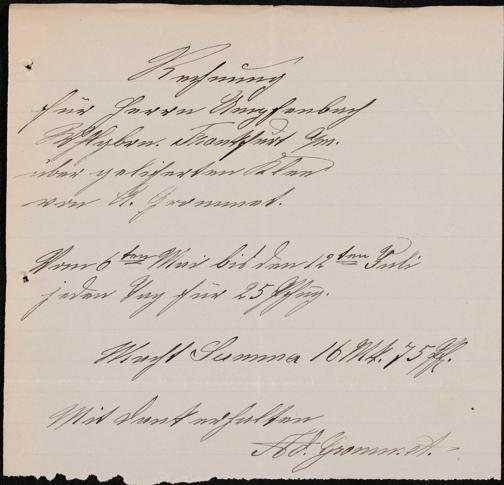 Rechnung
für Herrn Ampfenbach
Frankfurt a/m.
über geliferten Klee
von A. Grommet.
Vom 6ten Mai bis den 12ten Juli
jeden Tag für 25 Pfug.
Macht Summa 16 Mk. 75 Pf.
Mit Dank erhalten
Ad. Grommet.